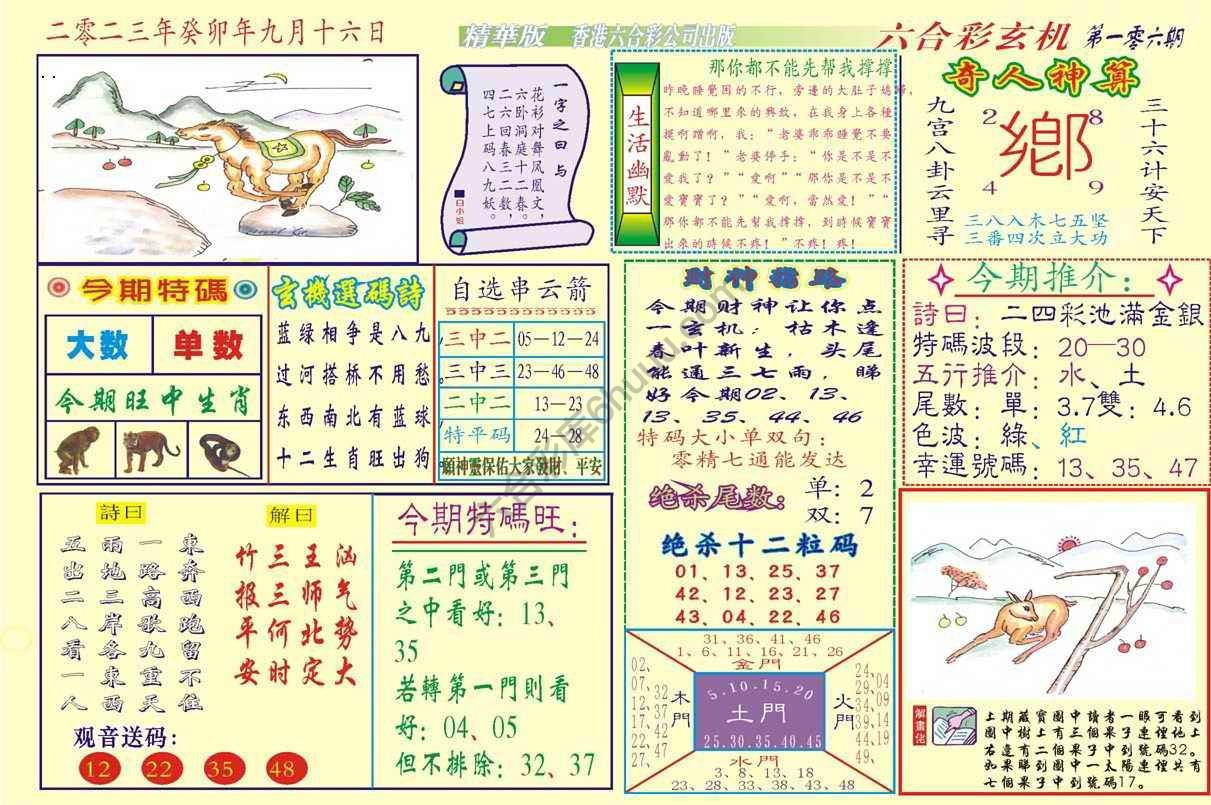 二零二三年癸卯年九月十六日
精華版 香港六合彩公司出版
六合彩玄机 第一零六期
一字之曰与
花衫对舞凤凰文，
六卧洞庭十二春。
二六回春三二数，
四七上码八九妖。
白小姐
生活幽默
那你都不能先帮我撑撑
昨晚睡覺困的不行，旁邊的大肚子媳婦，
不知道哪里來的興致，在我身上各種
挺啊蹭啊，我：“老婆乖乖睡覺不要
亂動了！”老婆停手：“你是不是不
愛我了？”“愛啊”“那你是不是不
愛寶寶了？”“愛啊，當然愛！”“
那你都不能先幫我撑撑，到時候寶寶
出來的時候不疼！”不疼！疼！
奇人神算
九宫八卦云里寻
三十六计安天下
2 8
鄉
4 9
三八入木七五坚
三番四次立大功
今期特碼
大数 单数
今期旺中生肖
玄機選碼詩
蓝绿相争是八九
过河搭桥不用愁
东西南北有蓝球
十二生肖旺出狗
自选串云箭
三中二 05—12—24
三中三 23—46—48
二中二 13—23
特平码 24—28
願神靈保佑大家發財、平安
財神指路
今期财神让你点
一玄机：枯木逢
春叶新生，头尾
能通三七雨，睇
好今期02、13、
13、35、44、46
特码大小单双句：
零精七通能发达
绝杀尾数：
单：2
双：7
绝杀十二粒码
01、13、25、37
42、12、23、27
43、04、22、46
今期推介：
詩曰：二四彩池滿金銀
特碼波段：20—30
五行推介：水、土
尾數：單：3.7雙：4.6
色波：綠、紅
幸運號碼：13、35、47
詩曰
東奔西跑留不住
一路高歌九重天
雨地三岸各東西
五出二八看一人
解曰
汹气勢大
王师北定
三三何时
竹报平安
观音送码：
12 22 35 48
今期特碼旺：
第二門或第三門
之中看好：13、
35
若轉第一門則看
好：04、05
但不排除：32、37
31、36、41、46
1、6、11、16、21、26
金門
02、
07、
12、
17、
22、
27、
32
37
42
47
木門
5.10.15.20
土門
25.30.35.40.45
火門
24、
29、
34、
39、
44、
49、
04
09
14
19
水門
3、8、13、18
23、28、33、38、43、48
解畫佬
上期藏寶圖中讀者一眼可看到
圖中樹上有三個果子連裡地上
右邊有二個果子中到號碼32。
如果睇到圖中一太陽連裡共有
七個果子中到號碼17。